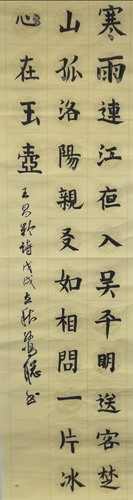 寒雨連江夜入吴平明送客楚
山孤洛陽親友如相問一片冰
心在玉壺
王昌齡詩戊戌立秋